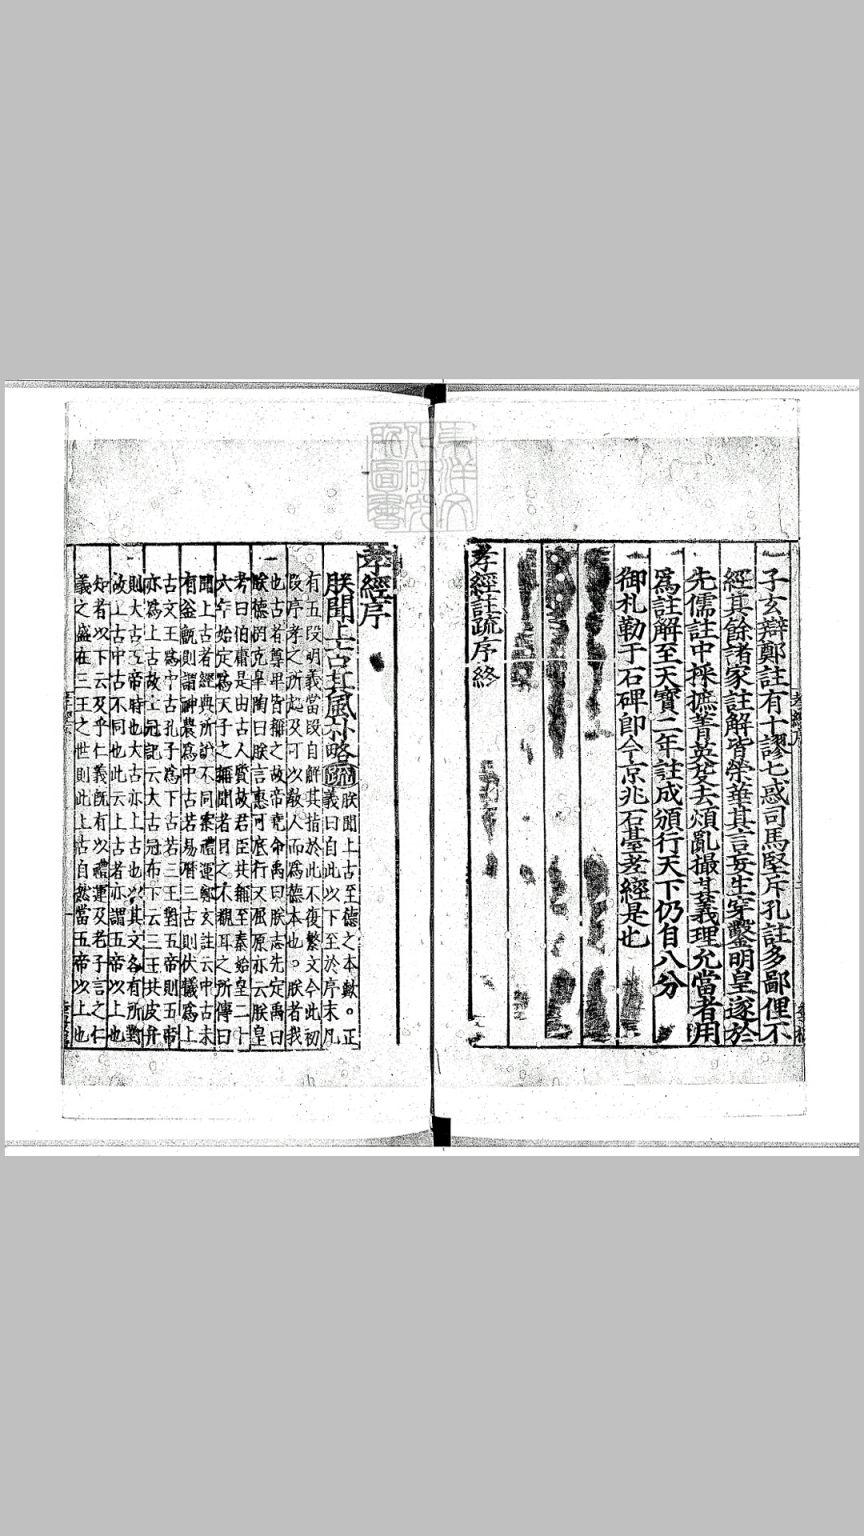 子玄辯鄭註有十謬七惑司馬堅斥孔註多鄙俚不
經其餘諸家註解皆榮華其言妄生穿鑿明皇遂於
先儒註中採摭菁英芟去煩亂撮其義理允當者用
爲註解至天寶二年註成頒行天下仍自八分
御札勒于石碑即今京兆石臺孝經是也
孝經註疏序終
孝經序
朕聞上古其風朴略 疏 朕聞上古至德之本歟。正
義曰自此以下至於序末凡
有五段明義當段自解其指於此不復繁文今此初
段序孝之所起及可以敎人而爲德本也。朕者我
也古者尊卑皆稱之故帝堯命禹曰朕志先定禹曰
朕德罔克皋陶曰朕言惠可底行又屈原亦云朕皇
考曰伯庸是由古人質故君臣共稱至秦始皇二十
六年始定爲天子之稱聞者目之不覩耳之所傳曰
聞上古者經典所說不同案禮運鄭玄註云中古未
有釜甑則謂神農爲中古若易曆三古則伏犧爲上
古文王爲中古孔子爲下古若三王對五帝則五帝
亦爲上古故士冠記云大古冠布下云三王共皮弁
則大古五帝時也大古亦上古也以其文各有所對
故上古中古不同也此云上古者亦謂五帝以上也
知者以下云及乎仁義旣有以禮運及老子言之仁
義之盛在三王之世則此上古自然當五帝以上也
東洋文
化研究
所圖書